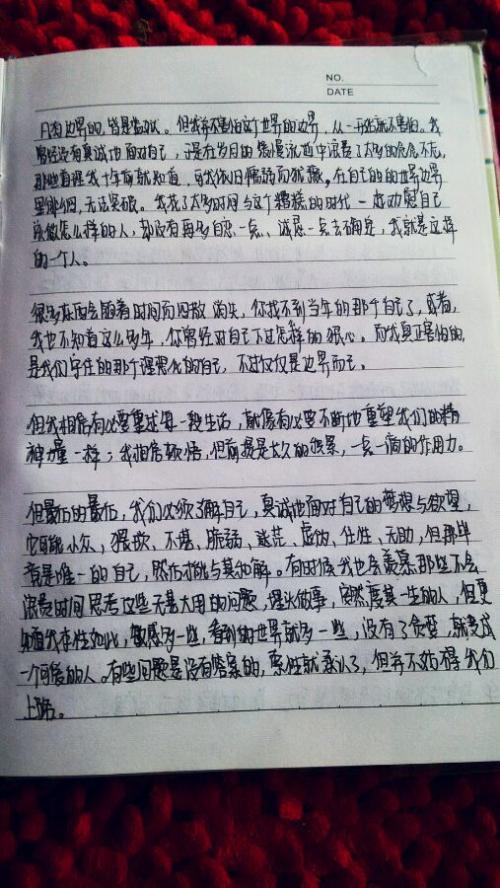 NO.
DATE
凡有边界的,皆是监狱。但我并不害怕这个世界的边界,从一开始就不害怕。我
曾经没有真诚地面对自己,于是在岁月的慢流逝中浪费了太多的
那些道理我十年前就知道,可我依旧。在自己的世界边界
里,无法突破。我花了太多时间与这个糟糕的时代一起劝慰自己
该做怎么样的人,却没有再多自恋一点、诚恳一点去确定,我就是这样
的一个人。
很多东西会随着时间而四散消失,你找不到当年的那个自己了,或者,
我也不知道这么多年,你曾经对自己下过怎样的狠心。而我真正害怕的,
是我们守住的那个理想化的自己,不过仅仅是边界而已。
但我相信有必要重述每一段生活,就像有必要不断地重塑我们的精
神力量一样;我相信顿悟,但前提是太久的积累,一点一滴的作用力。
但最后的最后,我们必须了解自己,真诚地面对自己的梦想与欲望,
它可能小众,猥琐、不堪、脆弱、迷茫、虚伪、任性、无助,但那毕
竟是唯一的自己,然后才能与其和解。有时候我也会羡慕那些不会
浪费时间思考这些无甚大用的问题,埋头做事,安然度其一生的人,但更
知道我本性如此,敏感多一些,看到的世界就多一些,没有了贪婪,就变成
一个可爱的人。有些问题是没有答案的,索性就承认了,但并不妨碍我们
上路。